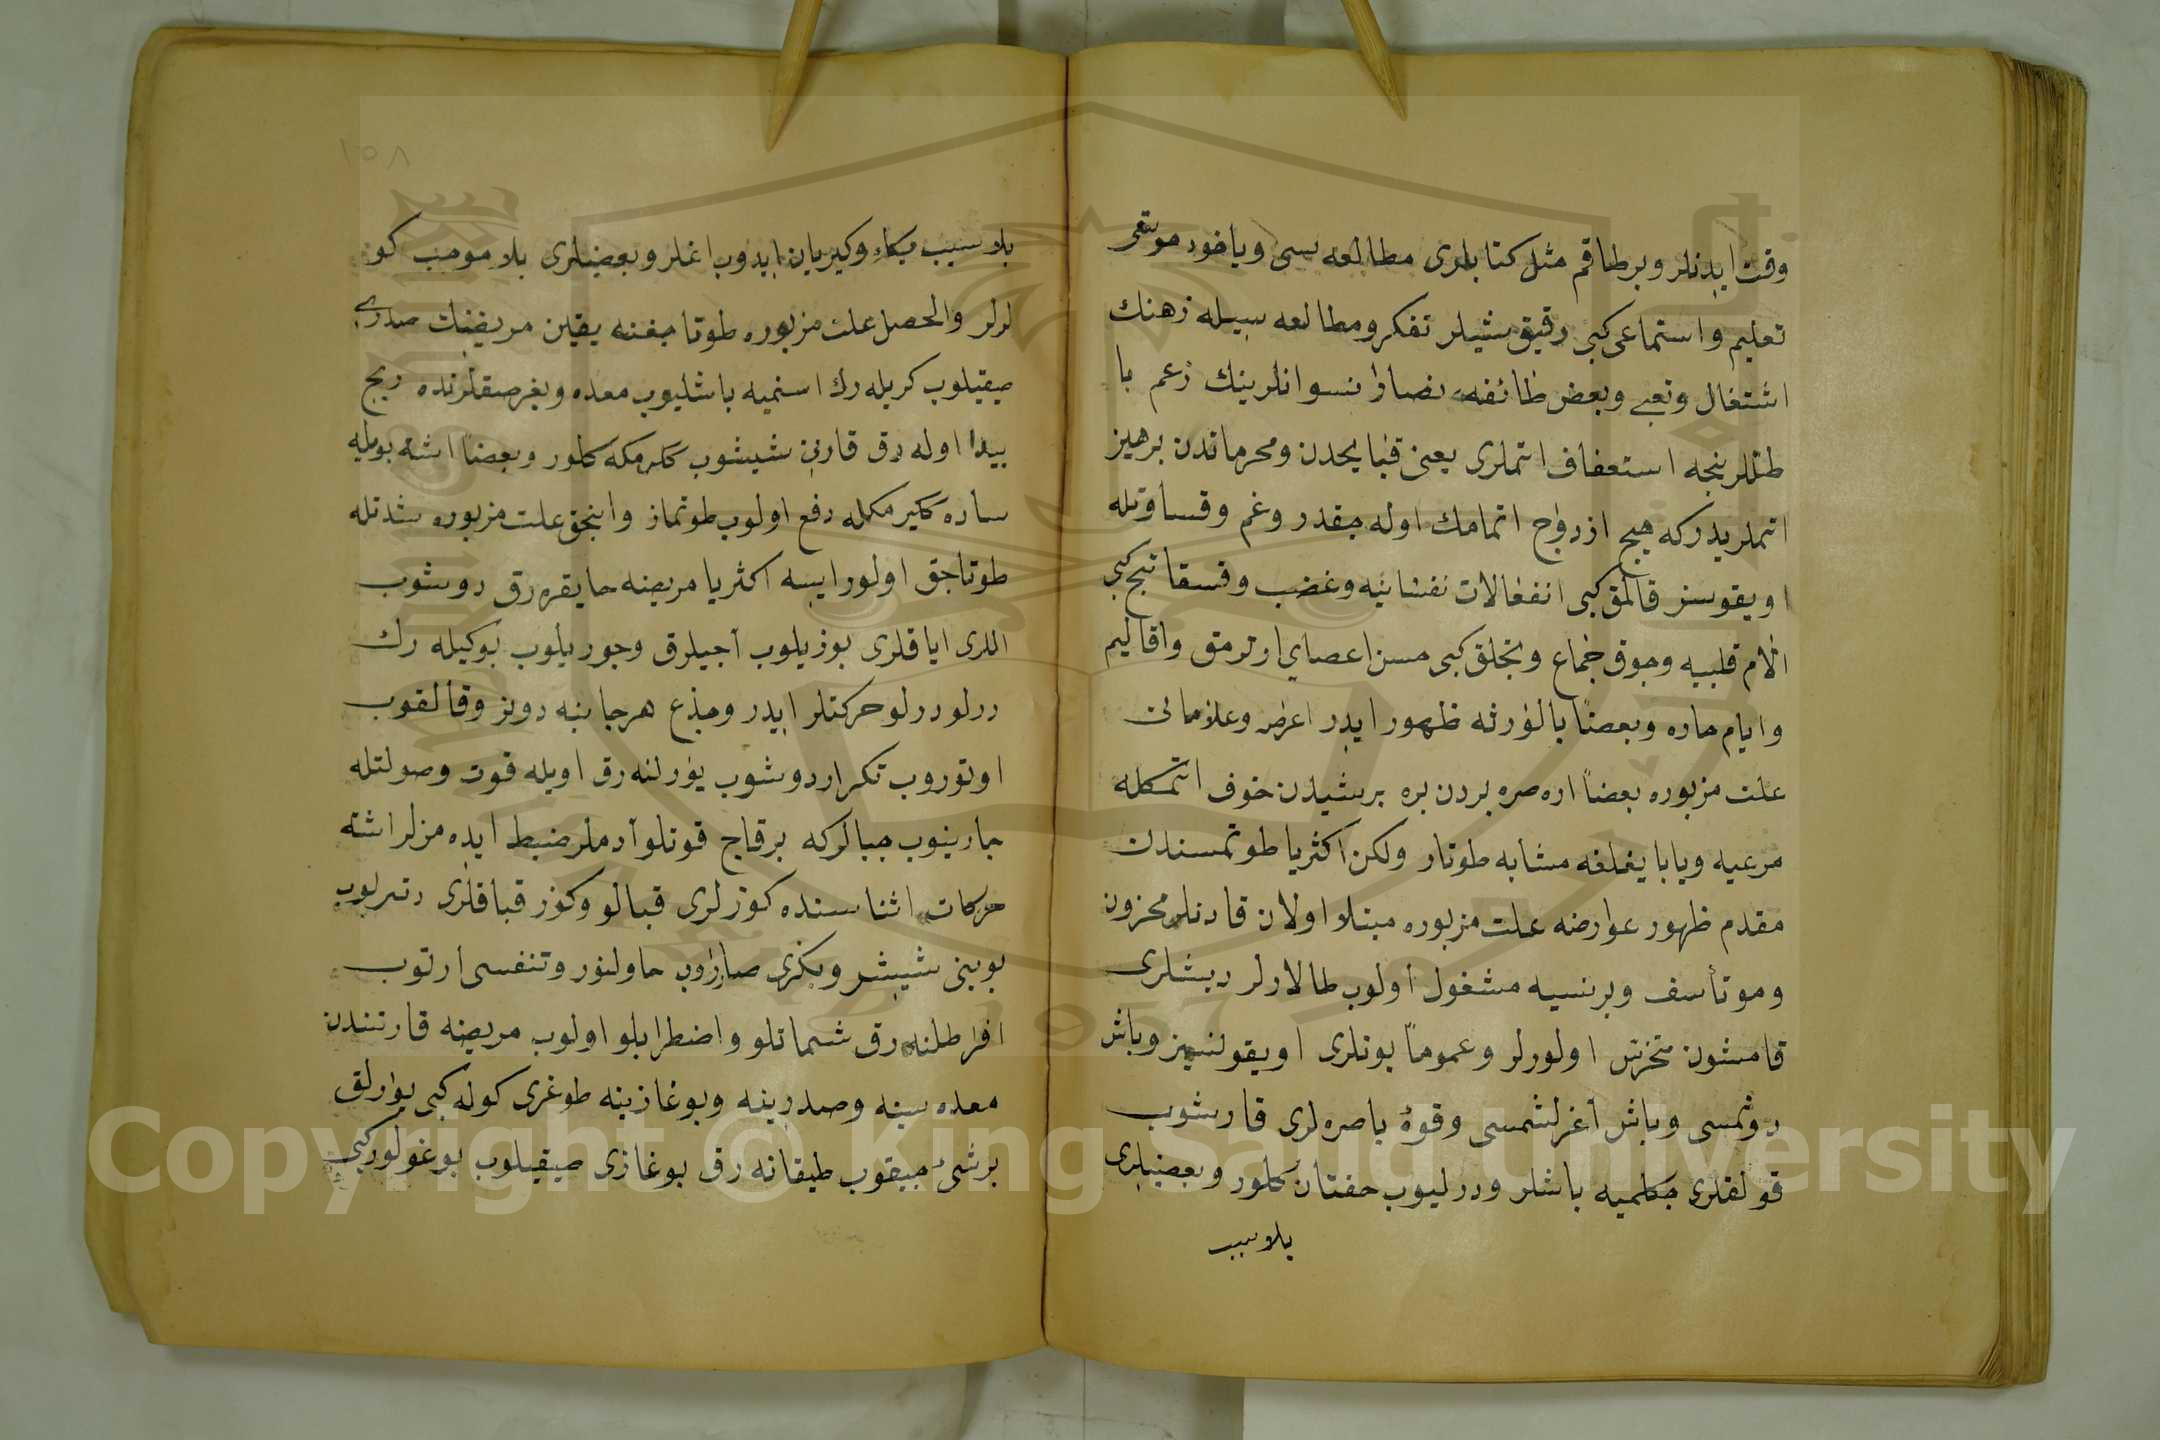 وقت ايدنلر وبرطاقم مثل كتابلرى مطالعه سى وياخود موسقى
تعليم واستماعى كبى رقيق شيلر تفكر ومطالعه سيله ذهنك
اشتغال وتعبى وبعض طائفهء نصارا نسوانلرينك زعم با
طللرنجه استعفاف اتملرى يعنى قبايحدن ومحرماتدن برهيز
اتملريدركه هيچ ازدواج اتمامك اوله جقدر وغم وقساوتله
اويقوسز قالمق كبى انفعالات نفسانيه وغضب وقسقانج كبى
الام قلبيه وچوق جماع ونجلق كبى مسن اعضاى ارترمق واقاليم
وايام حاره وبعضاً بالورثه ظهور ايدر اعراض وعلاماتى
علت مزبوره بعضاً اره صره بردن بره برشيدن خوف اتمكله
مرعيه ويابايغلغه مشابه طوتار ولكن اكثريا طوتمسندن
مقدم ظهور عوارضه علت مزبوره مبتلا اولان قادنلر محزون
وموتأسف وبرنسيه مشغول اولوب طالارلر ديشلرى
قامشون اولورلر وعموماً بونلرى اويقولنمز وباش
دونمسى وباش اغرلشمسى وقوهٔ باصره لرى قارشوب
قولقلرى چكلميه باشلر ودرليوب حفتان كلور وبعضيلرى
بلاسبب
١٥٨
بلاسبب بكاء وكيريان ايدوب اغلر وبعضيلرى بلا موجب كو
لرلر والحصل علت مزبوره طوتاجغنه يقين مريضك صدرى
صيقيلوب كريله رك اسنميه باشليوب معده وبغرصقلرنده ريح
بيدا اوله رق قارنى شيشوب ككرمكه كلور وبعضاً اشته بويله
ساده ككيرمكله دفع اولوب طوتماز وانجق علت مزبوره شدتله
طوتاجق اولور ايسه اكثريا مريضه حايقره رق دوشوب
اللرى اياقلرى بوزيلوب آجيلرق وچوريلوب بوكيله رك
درلو درلو حركتلر ايدر وجذع هرجانبه دونر وقالقوب
اوتوروب تكرار دوشوب يوورلنه رق اويله قوت وصولتله
چارينوب چبالركه برقاچ قوتلو آدملر ضبط ايده مزلر اشته
حركات اثناسنده كوزلرى قبالو وكوز قباقلرى دتريوب
بوينى شيشر وبكزى صاراروب حاولنور وتنفسى ارتوب
افراطلنه رق شماتلو واضطرابلو اولوب مريضه قارنندن
معده سينه وصدرينه وبوغازينه طوغرى كوله كبى يوارلق
برشى چيقوب طيقانه رق بوغازى صيقيلوب بوغولوركبى